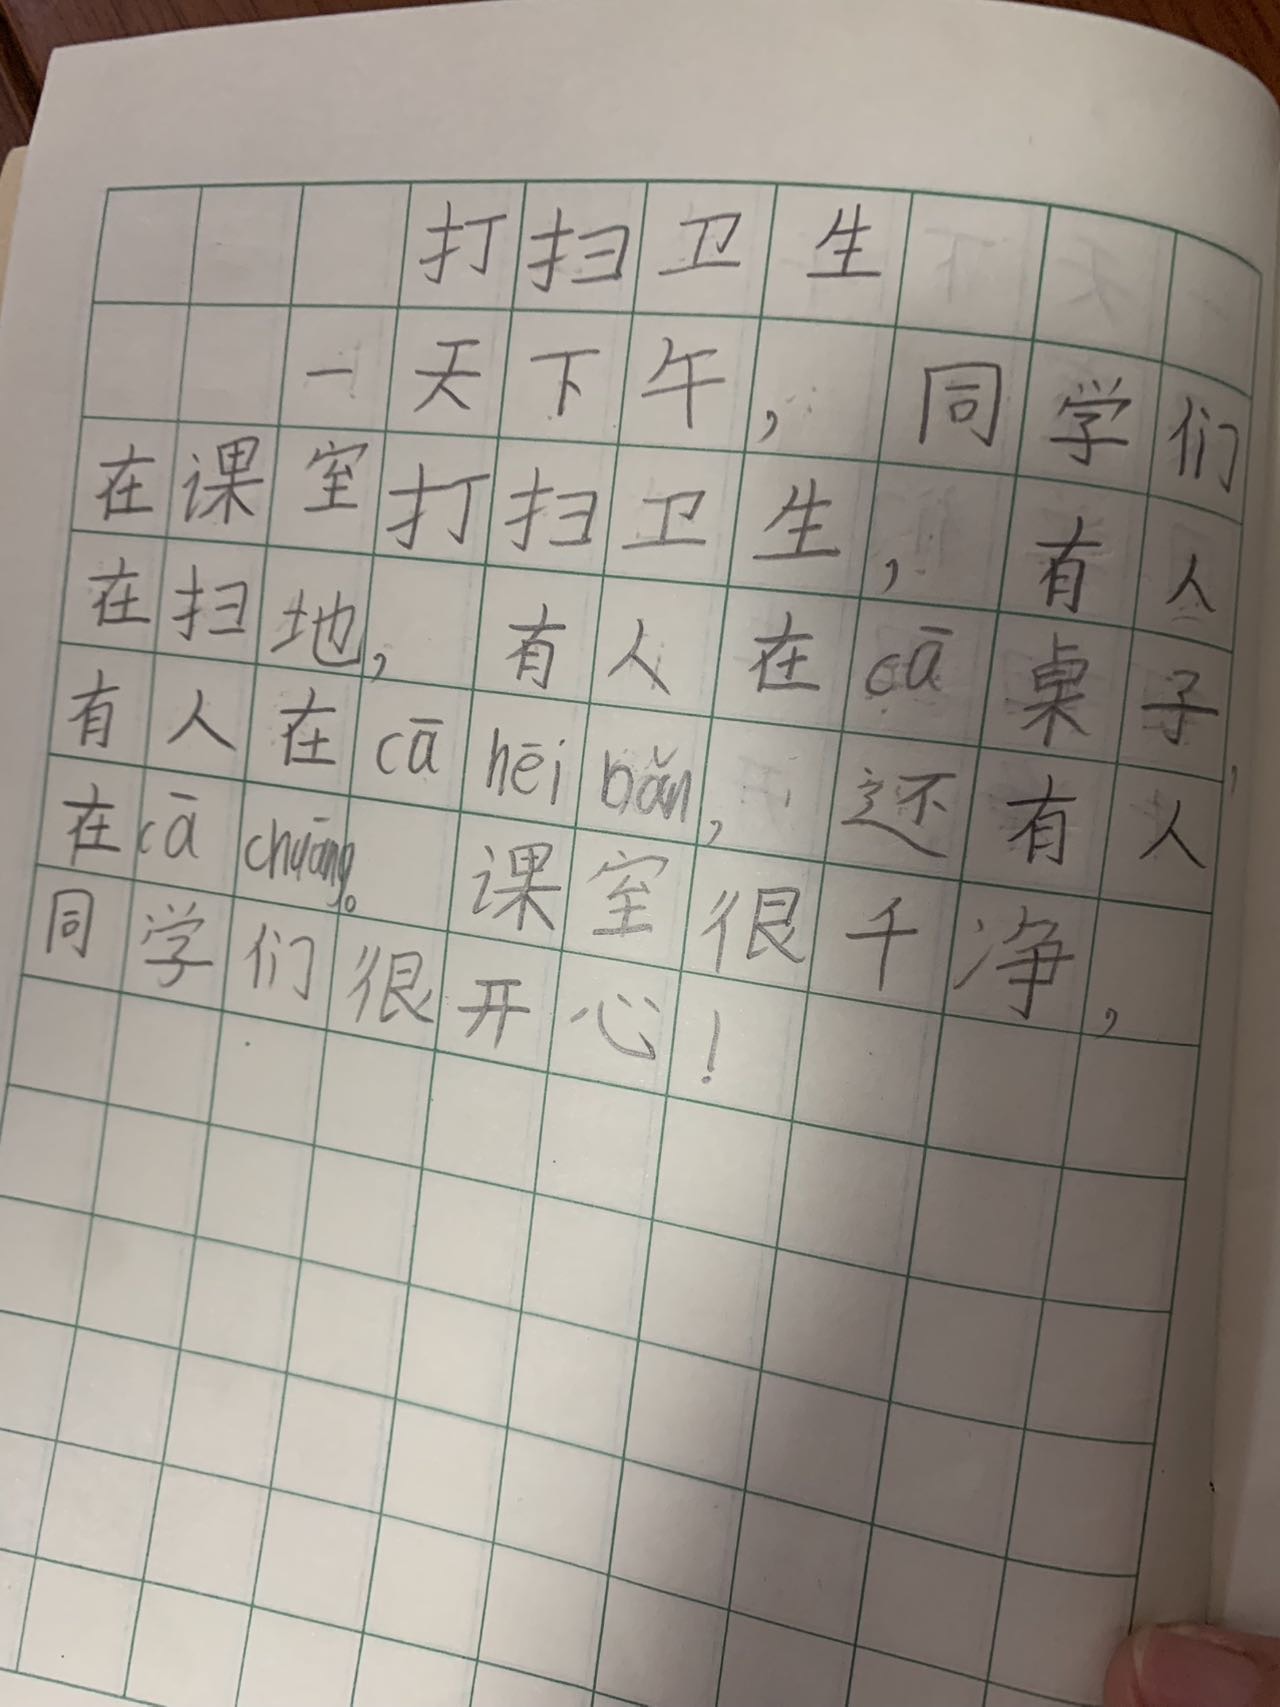 打扫卫生
一天下午，同学们
在课室打扫卫生，有人
在扫地，有人在cā桌子，
有人在cā hēi bǎn，还有人
在cā chuāng。课室很千净，
同学们很开心！